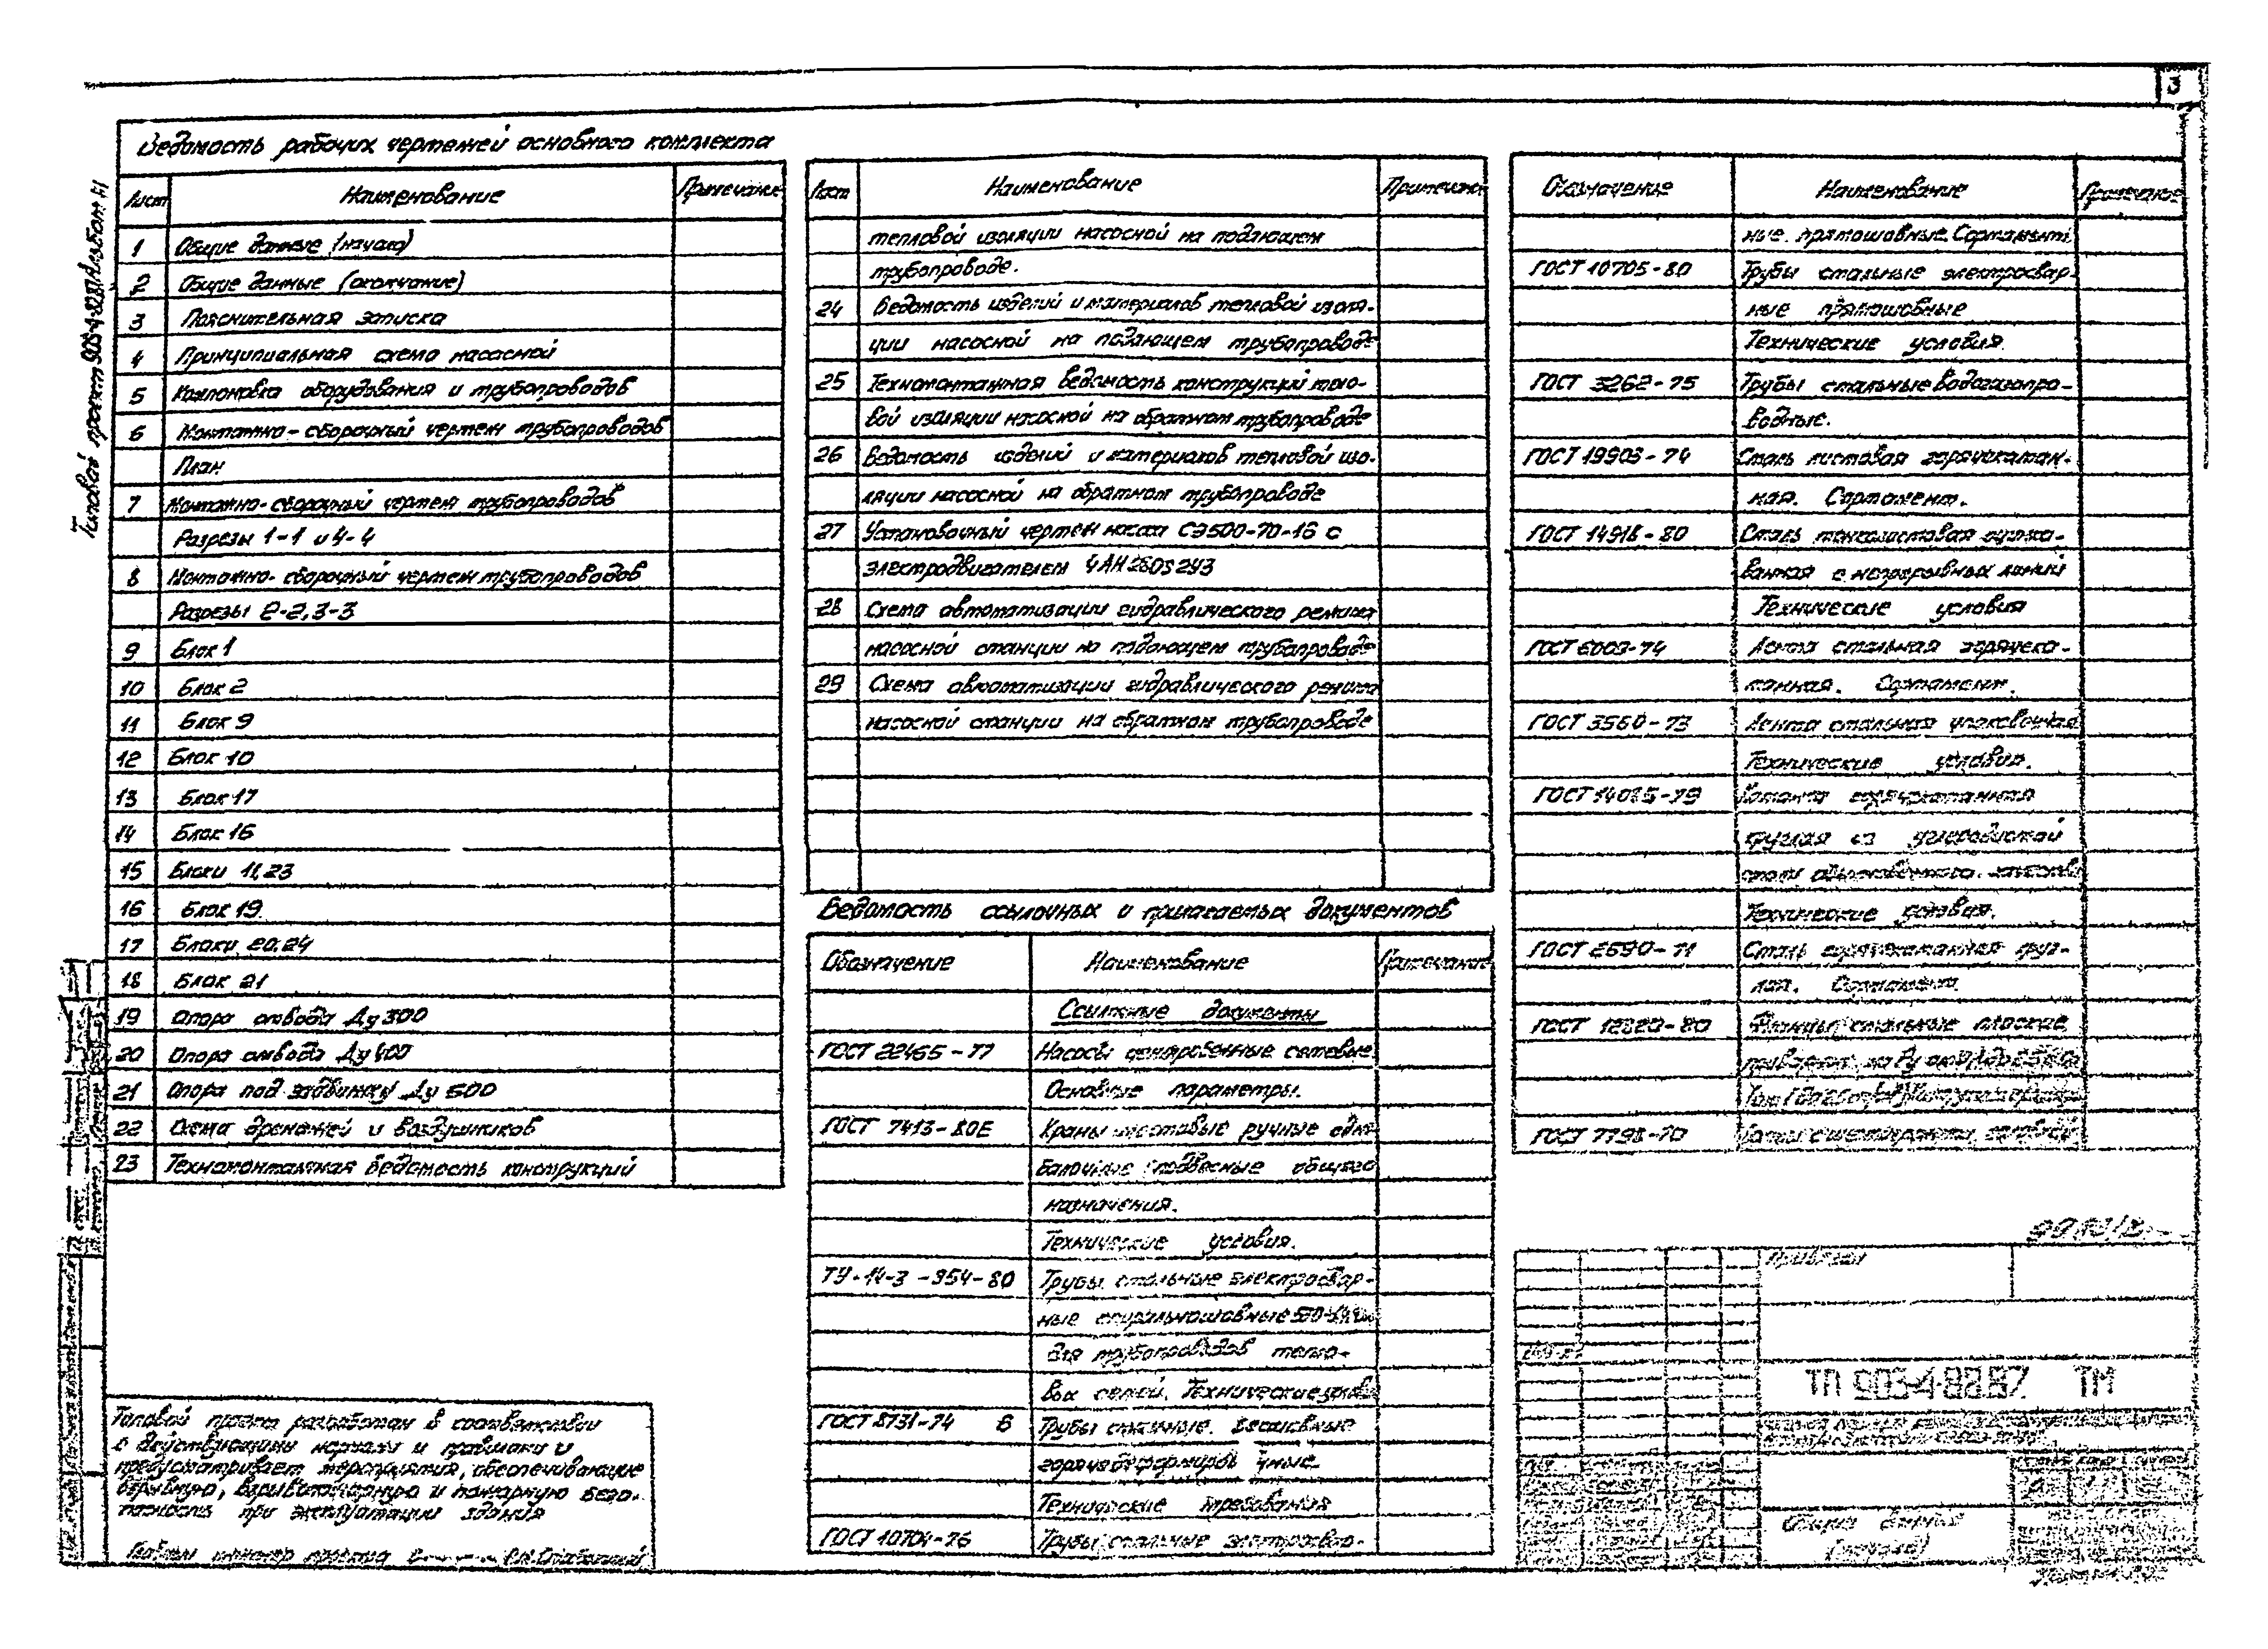 3
Типовой проект 903-4-82.87 Альбом II
Ведомость рабочих чертежей основного комплекта
Лист Наименование Примечание
1 Общие данные (начало)
2 Общие данные (окончание)
3 Пояснительная записка
4 Принципиальная схема насосной
5 Компоновка оборудования и трубопроводов
6 Монтажно-сборочный чертеж трубопроводов
План
7 Монтажно-сборочный чертеж трубопроводов
Разрезы 1-1 и 4-4
8 Монтажно-сборочный чертеж трубопроводов
Разрезы 2-2, 3-3
9 Блок 1
10 Блок 2
11 Блок 9
12 Блок 10
13 Блок 17
14 Блок 16
15 Блоки 11,23
16 Блок 19
17 Блоки 20,24
18 Блок 21
19 Опора отвода Ду 300
20 Опора отвода Ду 400
21 Опора под задвижку Ду 500
22 Схема дренажей и воздушников
23 Техномонтажная ведомость конструкций
Типовой проект разработан в соответствии
с действующими нормами и правилами и
предусматривает мероприятия, обеспечивающие
взрывную, взрывопожарную и пожарную безо-
пасность при эксплуатации здания
Главный инженер проекта
Лист Наименование Примечание
тепловой изоляции насосной на подающем
трубопроводе.
24 Ведомость изделий и материалов тепловой изоля-
ции насосной на подающем трубопроводе
25 Техномонтажная ведомость конструкций тепло-
вой изоляции насосной на обратном трубопроводе
26 Ведомость изделий и материалов тепловой изо-
ляции насосной на обратном трубопроводе
27 Установочный чертеж насоса СЭ500-70-16 с
электродвигателем 4АН280S2У3
28 Схема автоматизации гидравлического режима
насосной станции на подающем трубопроводе
29 Схема автоматизации гидравлического режима
насосной станции на обратном трубопроводе
Ведомость ссылочных и прилагаемых документов
Обозначение Наименование Примечание
Ссылочные документы
ГОСТ 22465-77 Насосы центробежные сетевые.
Основные параметры.
ГОСТ 7413-80Е Краны мостовые ручные одно-
балочные подвесные общего
назначения.
Технические условия.
ТУ-14-3-954-80 Трубы стальные электросвар-
ные спиральношовные
для трубопроводов тепло-
вых сетей. Технические услов.
ГОСТ 8731-74 В Трубы стальные бесшовные
горячедеформированные.
Технические требования
ГОСТ 10704-76 Трубы стальные электросвар-
Обозначение Наименование Примечание
ные прямошовные. Сортамент
ГОСТ 10705-80 Трубы стальные электросвар-
ные прямошовные
Технические условия.
ГОСТ 3262-75 Трубы стальные водогазопро-
водные.
ГОСТ 19903-74 Сталь листовая горячекатан-
ная. Сортамент.
ГОСТ 14918-80 Сталь тонколистовая оцинко-
ванная с непрерывных линий
Технические условия
ГОСТ 6009-74 Лента стальная горячека-
танная. Сортамент.
ГОСТ 3560-73 Лента стальная упаковочная
Технические условия.
ГОСТ 14085-79 Катанка горячекатанная
круглая из углеродистой
стали обыкновенного качества
Технические условия.
ГОСТ 2590-71 Сталь горячекатанная круг-
лая. Сортамент
ГОСТ 12820-80 Фланцы стальные плоские
приварные на Ру
ГОСТ 7798-70 Болты с шестигранной головкой
Привязан
ТП 903-4-82.87 ТМ
Общие данные
(начало)